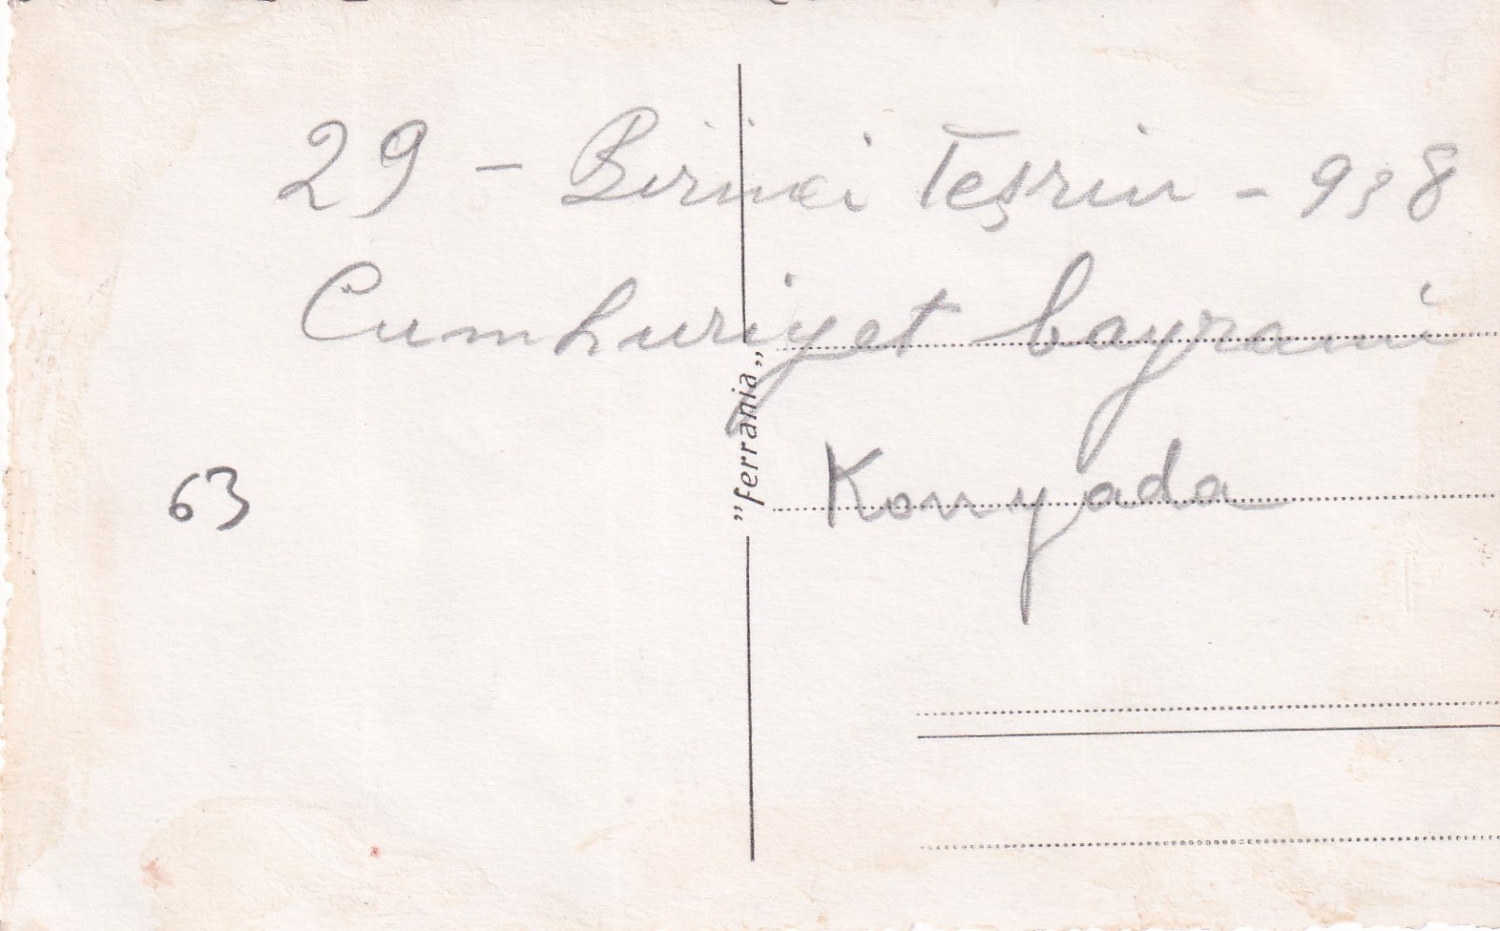 29 - Birinci Teşrin - 938
Cumhuriyet bayrami
"ferrania"
Konyada
63